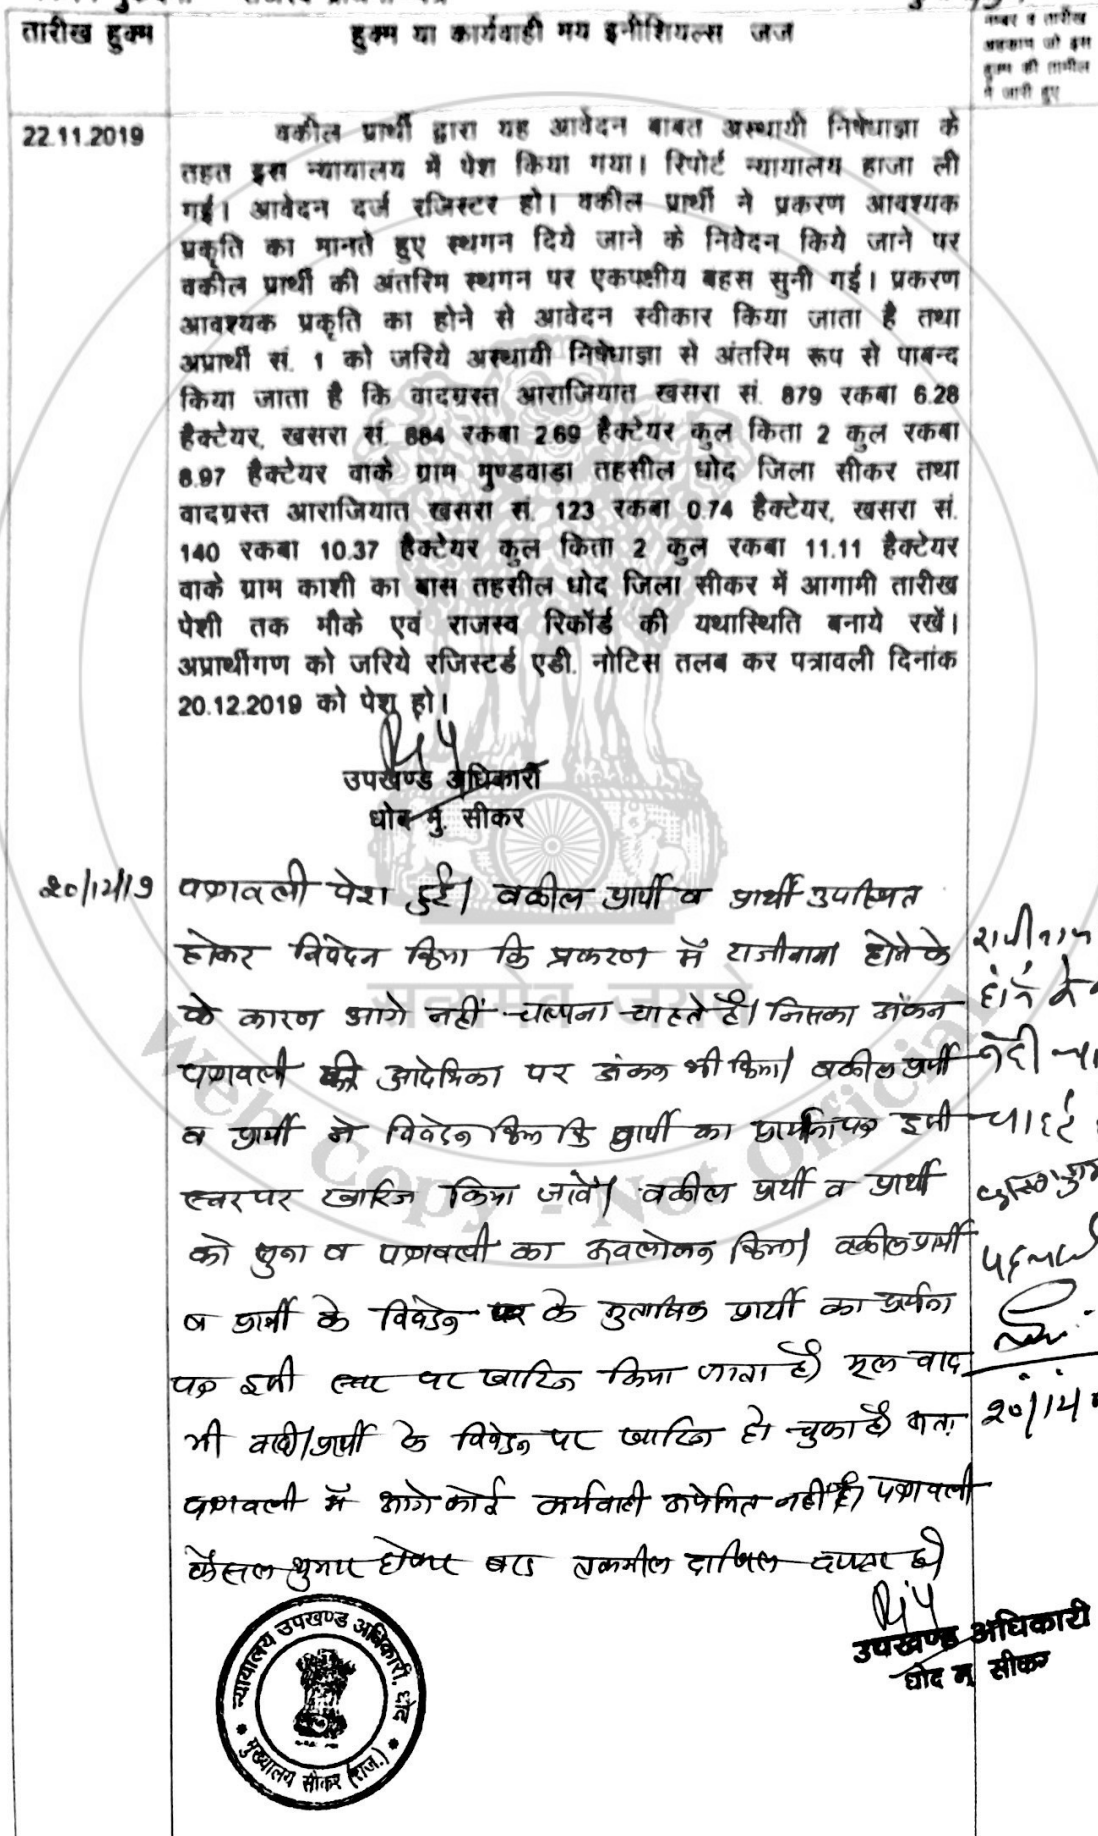 तारीख हुक्म
हुक्म या कार्यवाही मय इनीशियल्स जज
नम्बर व तारीख
अहकाम जो इस
हुक्म की तामील
में जारी हुए
22.11.2019
वकील प्रार्थी द्वारा यह आवेदन बाबत अस्थायी निषेधाज्ञा के
तहत इस न्यायालय में पेश किया गया। रिपोर्ट न्यायालय हाजा ली
गई। आवेदन दर्ज रजिस्टर हो। वकील प्रार्थी ने प्रकरण आवश्यक
प्रकृति का मानते हुए स्थगन दिये जाने के निवेदन किये जाने पर
वकील प्रार्थी की अंतरिम स्थगन पर एकपक्षीय बहस सुनी गई। प्रकरण
आवश्यक प्रकृति का होने से आवेदन स्वीकार किया जाता है तथा
अप्रार्थी सं. 1 को जरिये अस्थायी निषेधाज्ञा से अंतरिम रूप से पाबन्द
किया जाता है कि वादग्रस्त आराजियात खसरा सं. 879 रकबा 6.28
हैक्टेयर, खसरा सं. 884 रकबा 2.69 हैक्टेयर कुल किता 2 कुल रकबा
8.97 हैक्टेयर वाके ग्राम मुण्डवाडा तहसील धोद जिला सीकर तथा
वादग्रस्त आराजियात खसरा सं. 123 रकबा 0.74 हैक्टेयर, खसरा सं.
140 रकबा 10.37 हैक्टेयर कुल किता 2 कुल रकबा 11.11 हैक्टेयर
वाके ग्राम काशी का बास तहसील धोद जिला सीकर में आगामी तारीख
पेशी तक मौके एवं राजस्व रिकॉर्ड की यथास्थिति बनाये रखें।
अप्रार्थीगण को जरिये रजिस्टर्ड एडी. नोटिस तलब कर पत्रावली दिनांक
20.12.2019 को पेश हो।
उपखण्ड अधिकारी
धोद मु. सीकर
20/12/19 पत्रावली पेश हुई। वकील प्रार्थी व प्रार्थी उपस्थित
होकर निवेदन किया कि प्रकरण में राजीनामा होने के
के कारण आगे नहीं चलाना चाहते है। जिसका अंकन
पत्रावली की आदेशिका पर अंकन भी किया। वकील प्रार्थी
व प्रार्थी ने निवेदन किया कि प्रार्थी का प्रार्थनापत्र इसी
स्तर पर खारिज किया जावे। वकील प्रार्थी व प्रार्थी
को सुना व पत्रावली का अवलोकन किया। वकील प्रार्थी
व प्रार्थी के निवेदन के मुताबिक प्रार्थी का प्रार्थना
पत्र इसी स्तर पर खारिज किया जाता है। मूल वाद
भी वादी/प्रार्थी के निवेदन पर खारिज हो चुका है। अतः
पत्रावली में आगे कोई कार्यवाही अपेक्षित नहीं है। पत्रावली
फैसल शुमार होकर बाद तकमील दाखिल दफ्तर हो।
उपखण्ड अधिकारी
धोद मु. सीकर
न्यायालय उपखण्ड अधिकारी, धोद
मुख्यालय सीकर (राज.)
सत्यमेव जयते
Web Copy - Not Official